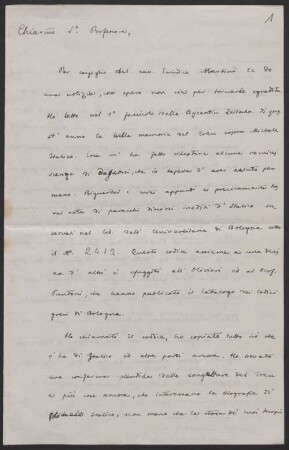 1
Chiar.mo S.r Professore,
Per consiglio del cav. Emidio Martini Le do
una notizia, che spero non sia per tornarle sgradita.
Ho letto nel 1° fascicolo della Byzantin. Zeitschr. di que
st'anno la bella memoria del Treu sopra Michele
Italico. Essa m'ha fatto ridestare alcune remini
scenze di, che io sapeva d'aver avuto per
mano. Riguardai i miei appunti e precisamente tro
vai nota di parecchi discorsi inediti d'Italico con
servati nel cod. dell'Universitaria di Bologna sotto
il N. 2412. Questo codice assieme a una deci
na d'altri è sfuggito all'Olivieri ed al Prof.
Puntoni, che hanno pubblicato il catalogo dei codici
greci di Bologna.
Ho esaminato il codice, ho copiato tutto ciò che
v'ha di Italico ed altre parti ancora. Ho trovato
una conferma splendida delle congetture del Treu
e più cose ancora, che interessano la biografia di
Michele Italico, non meno che la storia dei suoi tempi